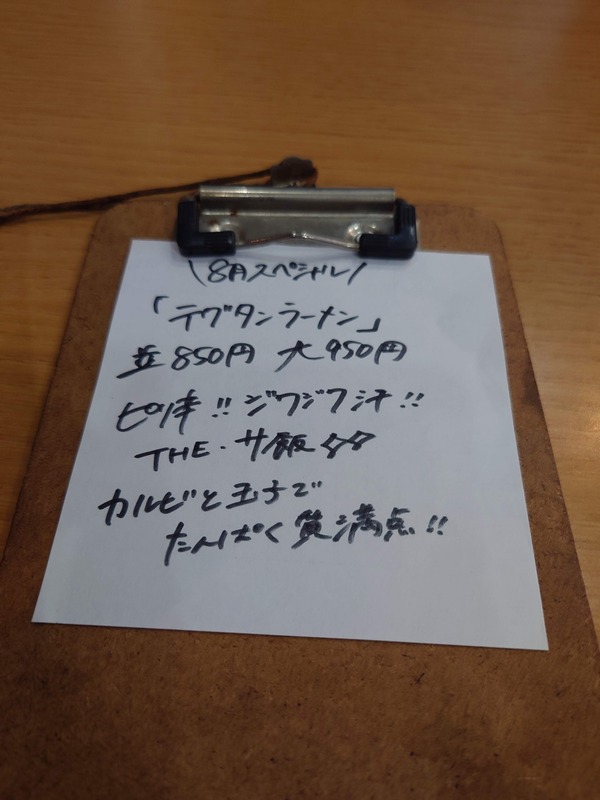 \8月スペシャル/
「テグタンラーメン」
並850円 大950円
ピリ辛!! ジワジワ汗!!
THE・サ飯
カルビと玉子で
たんぱく質満点!!